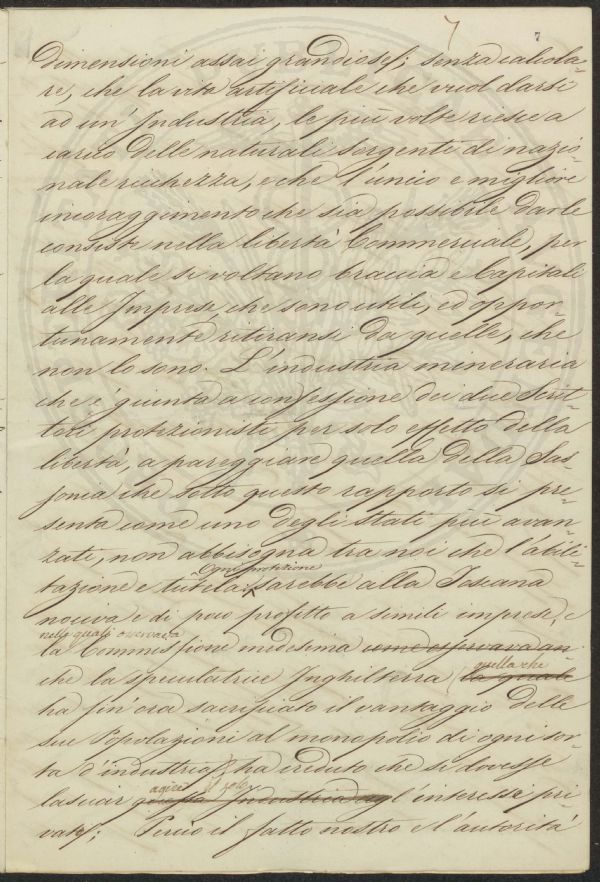 7 7
dimensioni assai grandiose; senza calcola-
re, che la vita artificiale che vuol darsi
ad un' Industria, le più volte riesce a
carico delle naturali sorgenti di nazio-
nale ricchezza, e che l'unico e migliore
incoraggimento che sia possibile darle
consiste nella libertà Commerciale, per
la quale si voltano braccia e Capitali
alle Imprese, che sono utili, ed oppor-
tunamente ritiransi da quelle, che
non lo sono. L'industria mineraria
che è giunta a confessione dei due Scrit-
tori protezionisti per solo effetto della
libertà, a pareggiare quella della Sas-
sonia che sotto questo rapporto si pre-
senta come uno degli Stati più avan-
zati, non abbisogna tra noi che l'abili-
ogni protezione
tazione e tutela sarebbe alla Toscana
nociva e di poco profitto a simili imprese, e
nelle quali osservava
la Commissione medesima come osservava an-
quella che
che la speculatrice Inghilterra la quale
ha fin' ora sacrificato il vantaggio delle
sue Popolazioni al monopolio di ogni sor-
ta d'industria ha creduto che si dovesse
agire il solo
lasciar questa Industria all'interesse pri-
vato; Perciò il fatto nostro e l'autorità